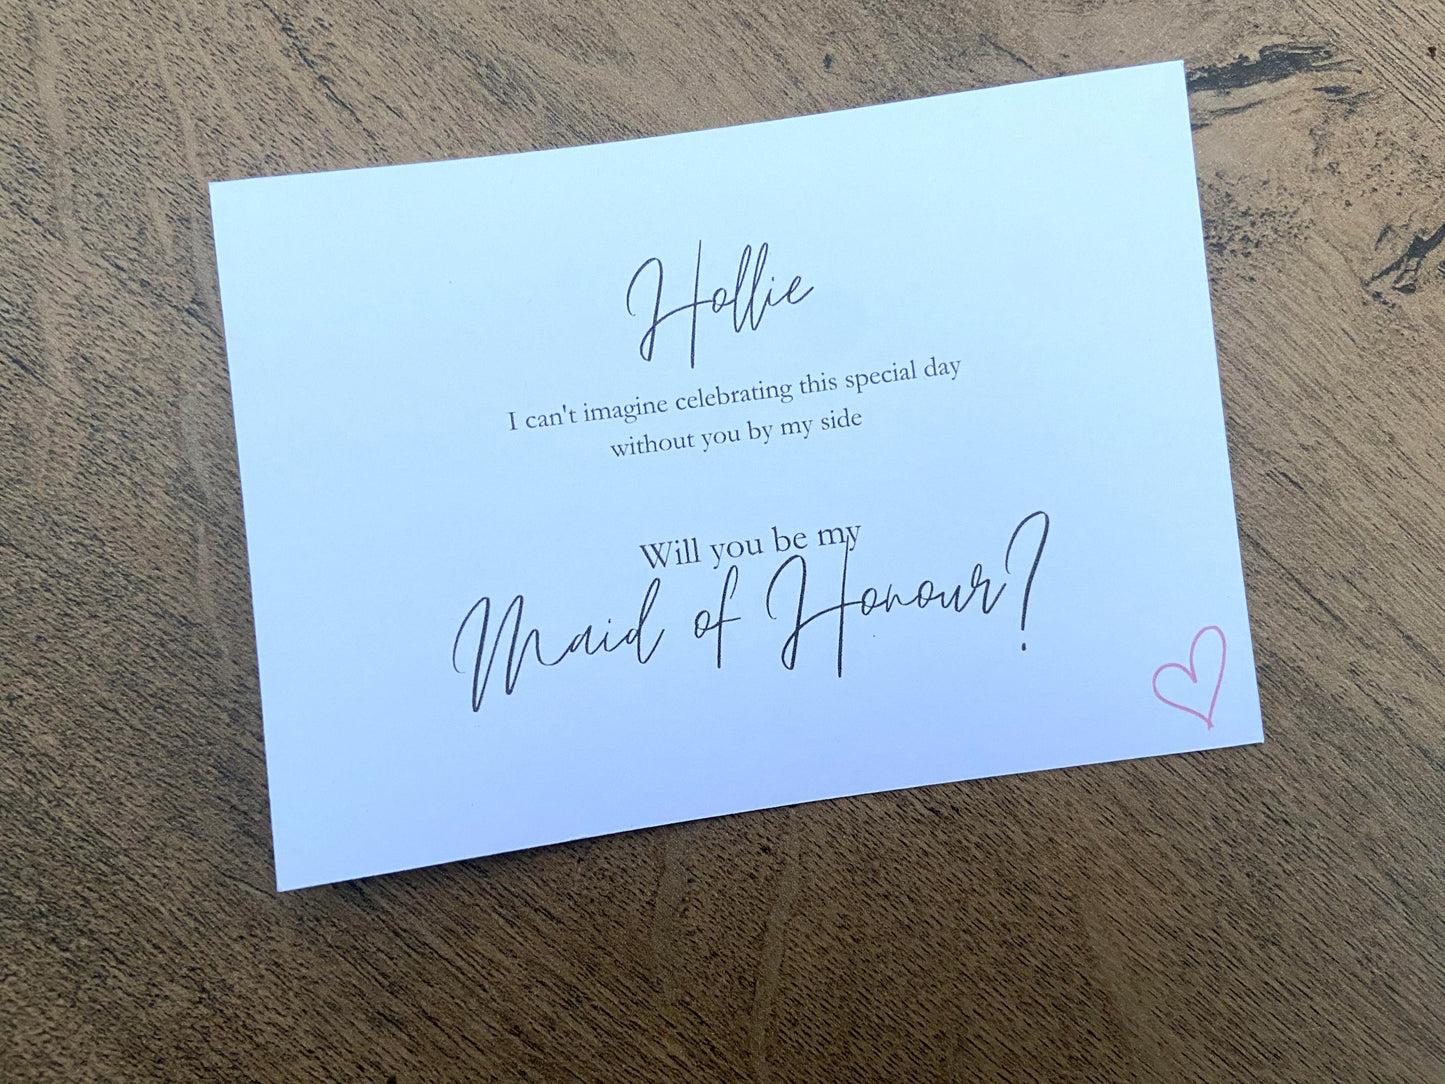 Hollie
I can't imagine celebrating this special day
without you by my side
Will you be my
Maid of Honour?